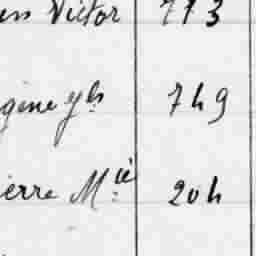 Victor 773
gène yls 749
ierre Mie 204